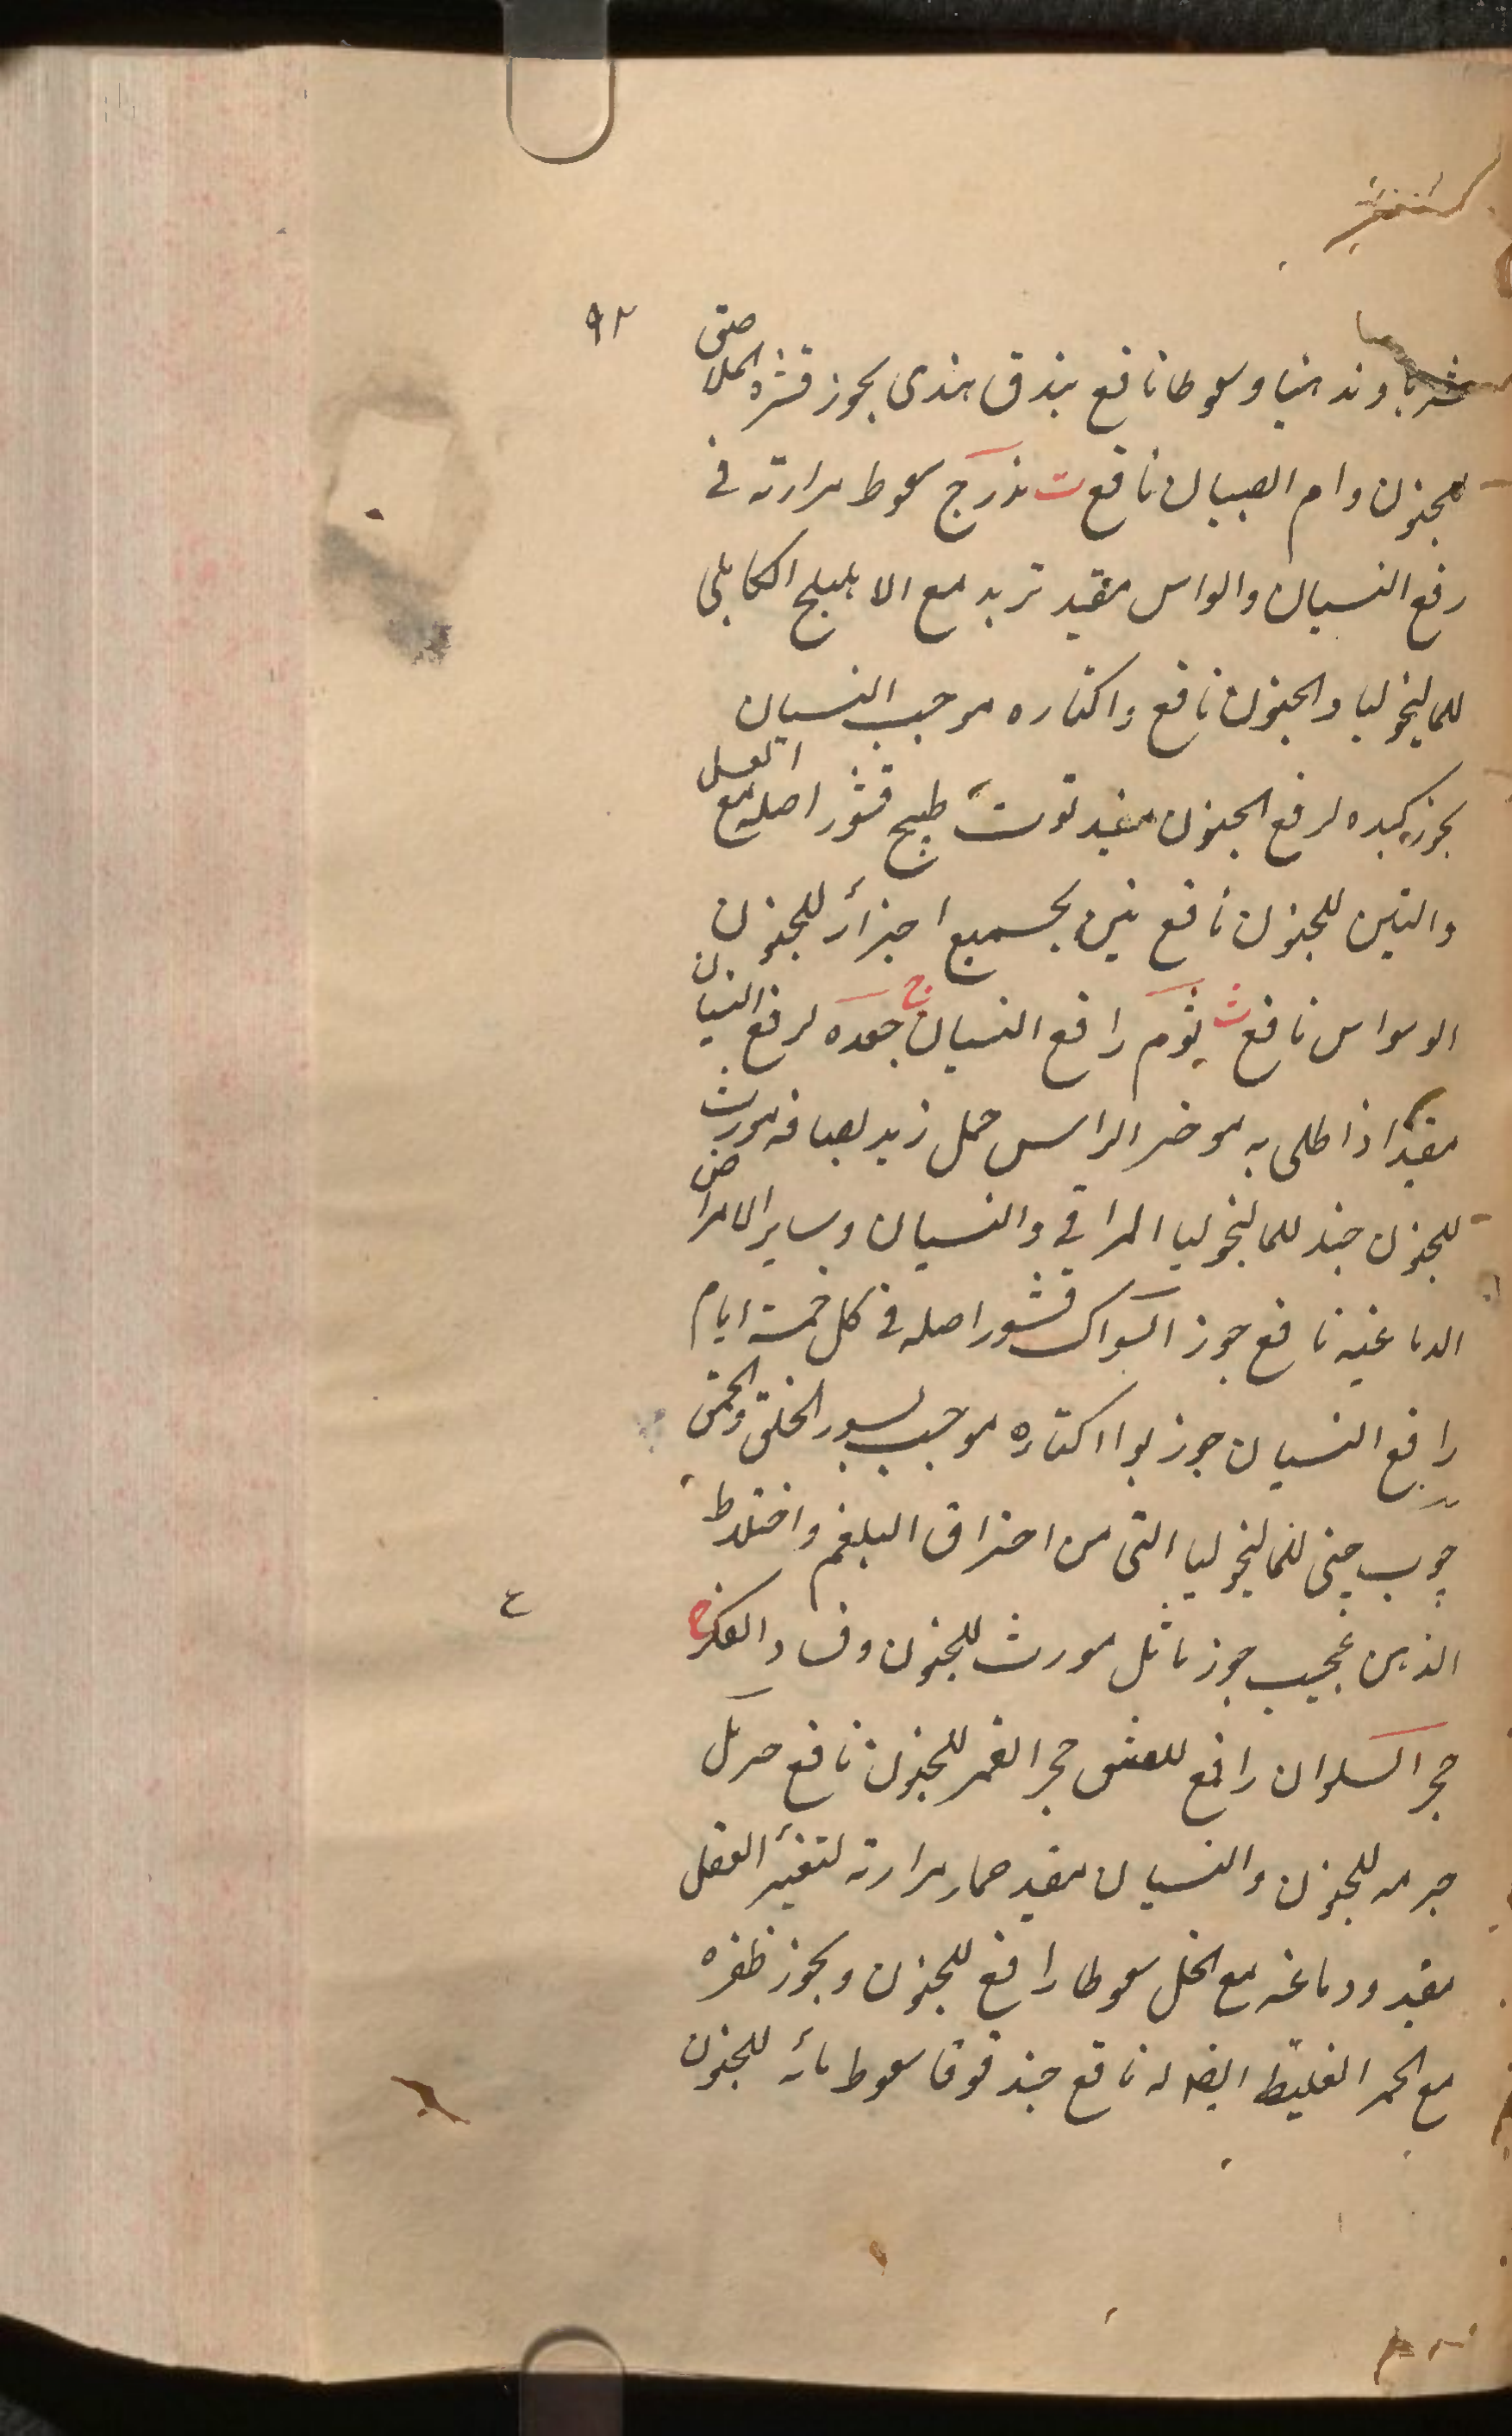 ۹۲
شربا وتدهینا وسعوطا نافع بندق هندی بخور قشره الملاصق
للجنون وام الصبیان نافع ت تذرج سعوط مرارته فی
رفع النسیان والواس مفید تربد مع الاهلیلج الکابلی
للمالیخولیا والجنون نافع واکثاره موجب النسیان
بخور کبده لرفع الجنون مفید توت طبیخ قشور اصله مع العسل
والتین للجنون نافع تین بجمیع اجزائه للجنون
الوسواس نافع ث ثوم رافع النسیان ج جعده لرفع النسیان
مفید اذا طلی به موخر الراس جمل زبد لعابه مورث
للجنون جند للمالیخولیا المراقی والنسیان وسایر الامراض
الدماغیه نافع جوز السواک قشور اصله فی کل خمسة ایام
رافع النسیان جوز بوا اکثاره موجب لسوء الخلق والحمق
چوب چینی للمالیخولیا التی من احتراق البلغم واختلاط
الذهن عجیب جوز ماثل مورث للجنون وفساد الفکر ح
حجر السلوان رافع للعشق حجر القمر للجنون نافع حرمل
جرمه للجنون والنسیان مفید حمار مرارته لتغیر العقل
مفید ودماغه مع الخل سعوطا رافع للجنون وبخور ظفره
مع الخمر الغلیظ ایضا له نافع حند قوقا سعوط مائه للجنون